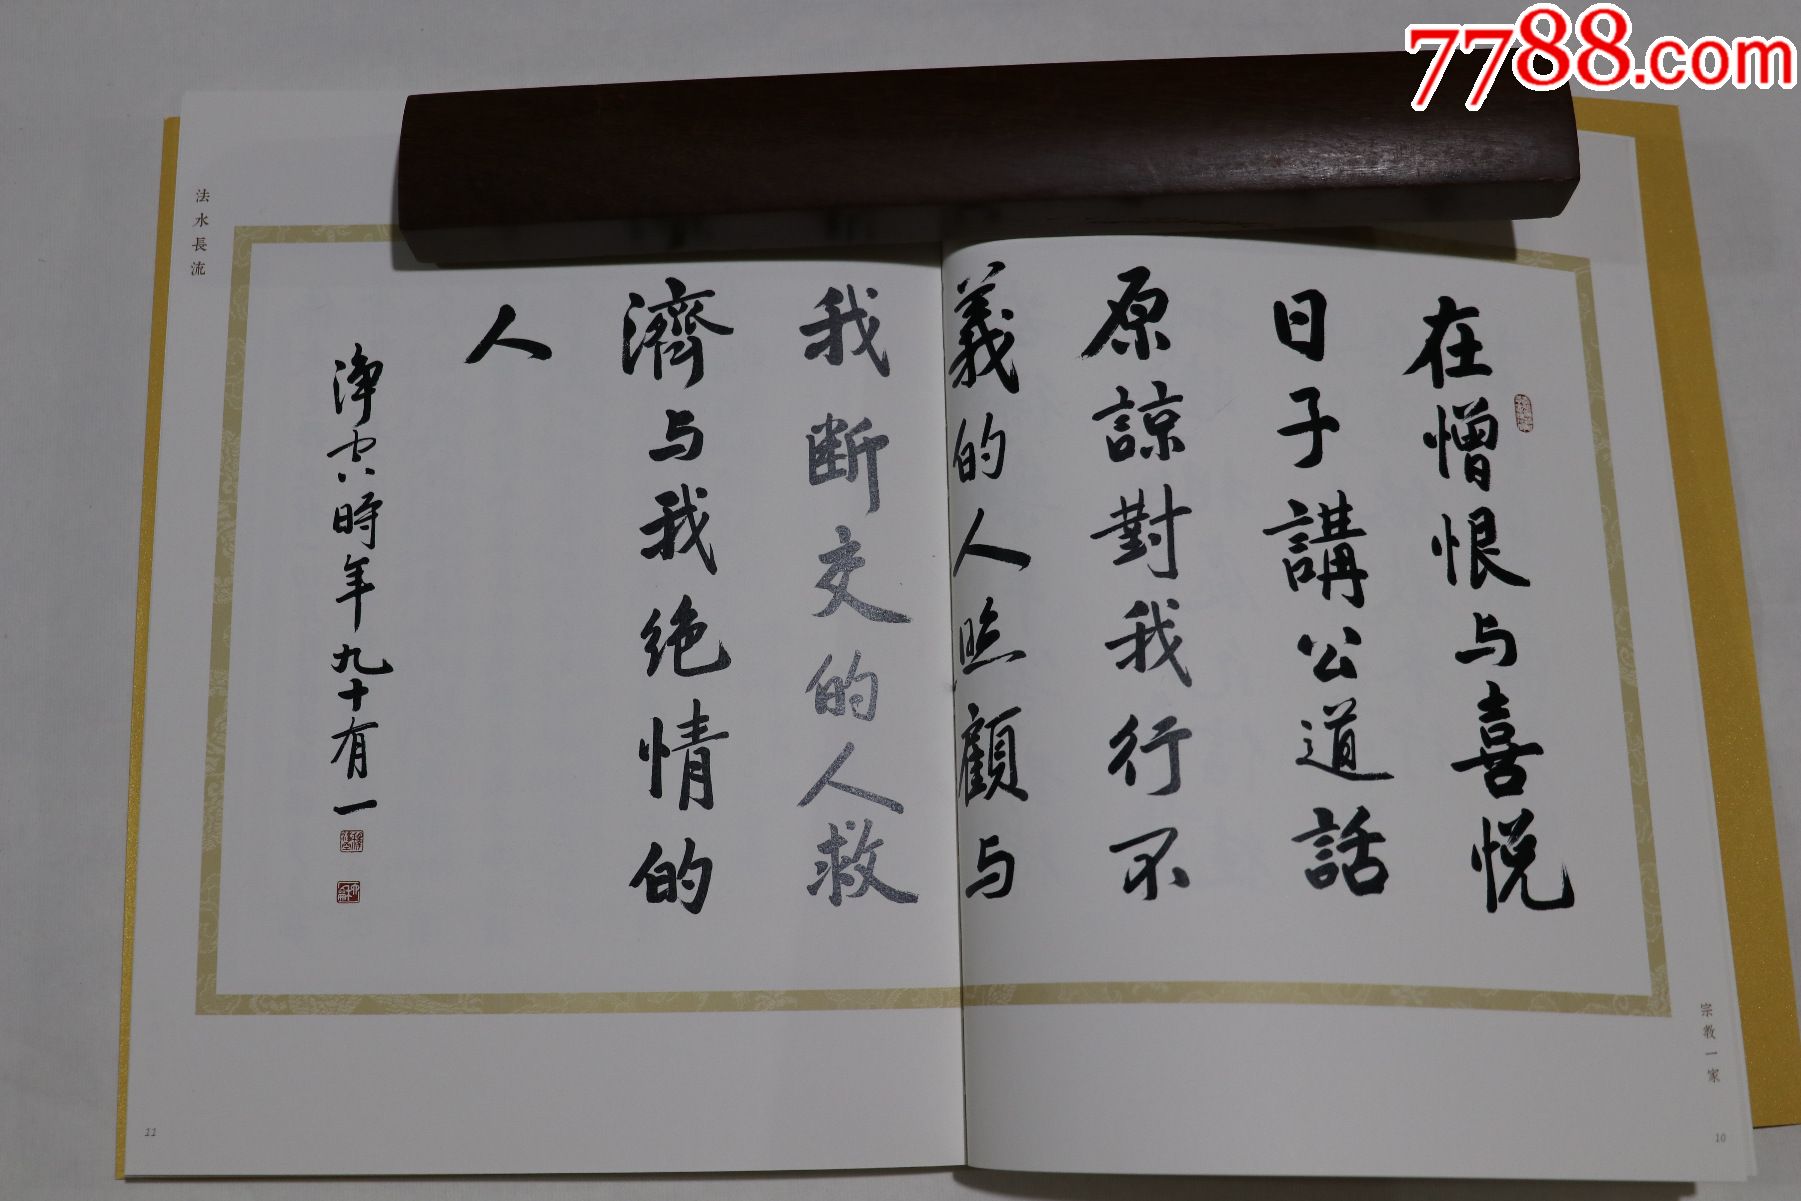 7788.com
在憎恨与喜悦
日子講公道話
原諒對我行不
義的人照顧与
我断交的人救
濟与我绝情的
人
淨空時年九十有一
法水長流
宗教一家
11
10